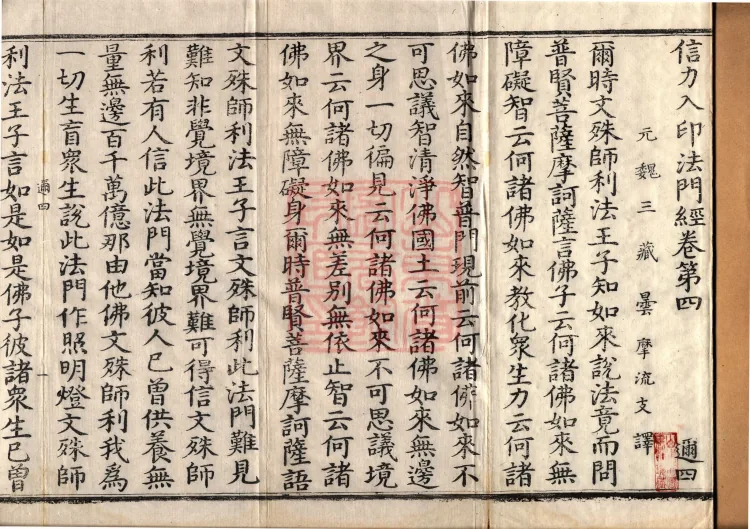 信力入印法門經卷第四
邇四
元魏三藏曇摩流支譯
爾時文殊師利法王子知如來說法竟而問
普賢菩薩摩訶薩言佛子云何諸佛如來無
障礙智云何諸佛如來教化衆生力云何諸
佛如來自然智普門現前云何諸佛如來不
可思議智清淨佛國土云何諸佛如來無邊
之身一切徧見云何諸佛如來不可思議境
界云何諸佛如來無差別無依止智云何諸
佛如來無障礙身爾時普賢菩薩摩訶薩語
文殊師利法王子言文殊師利此法門難見
難知非覺境界無覺境界難可得信文殊師
利若有人信此法門當知彼人已曾供養無
量無邊百千萬億那由他佛文殊師利我爲
一切生盲衆生說此法門作照明燈文殊師
邇四
一
利法王子言如是如是佛子彼諸衆生已曾